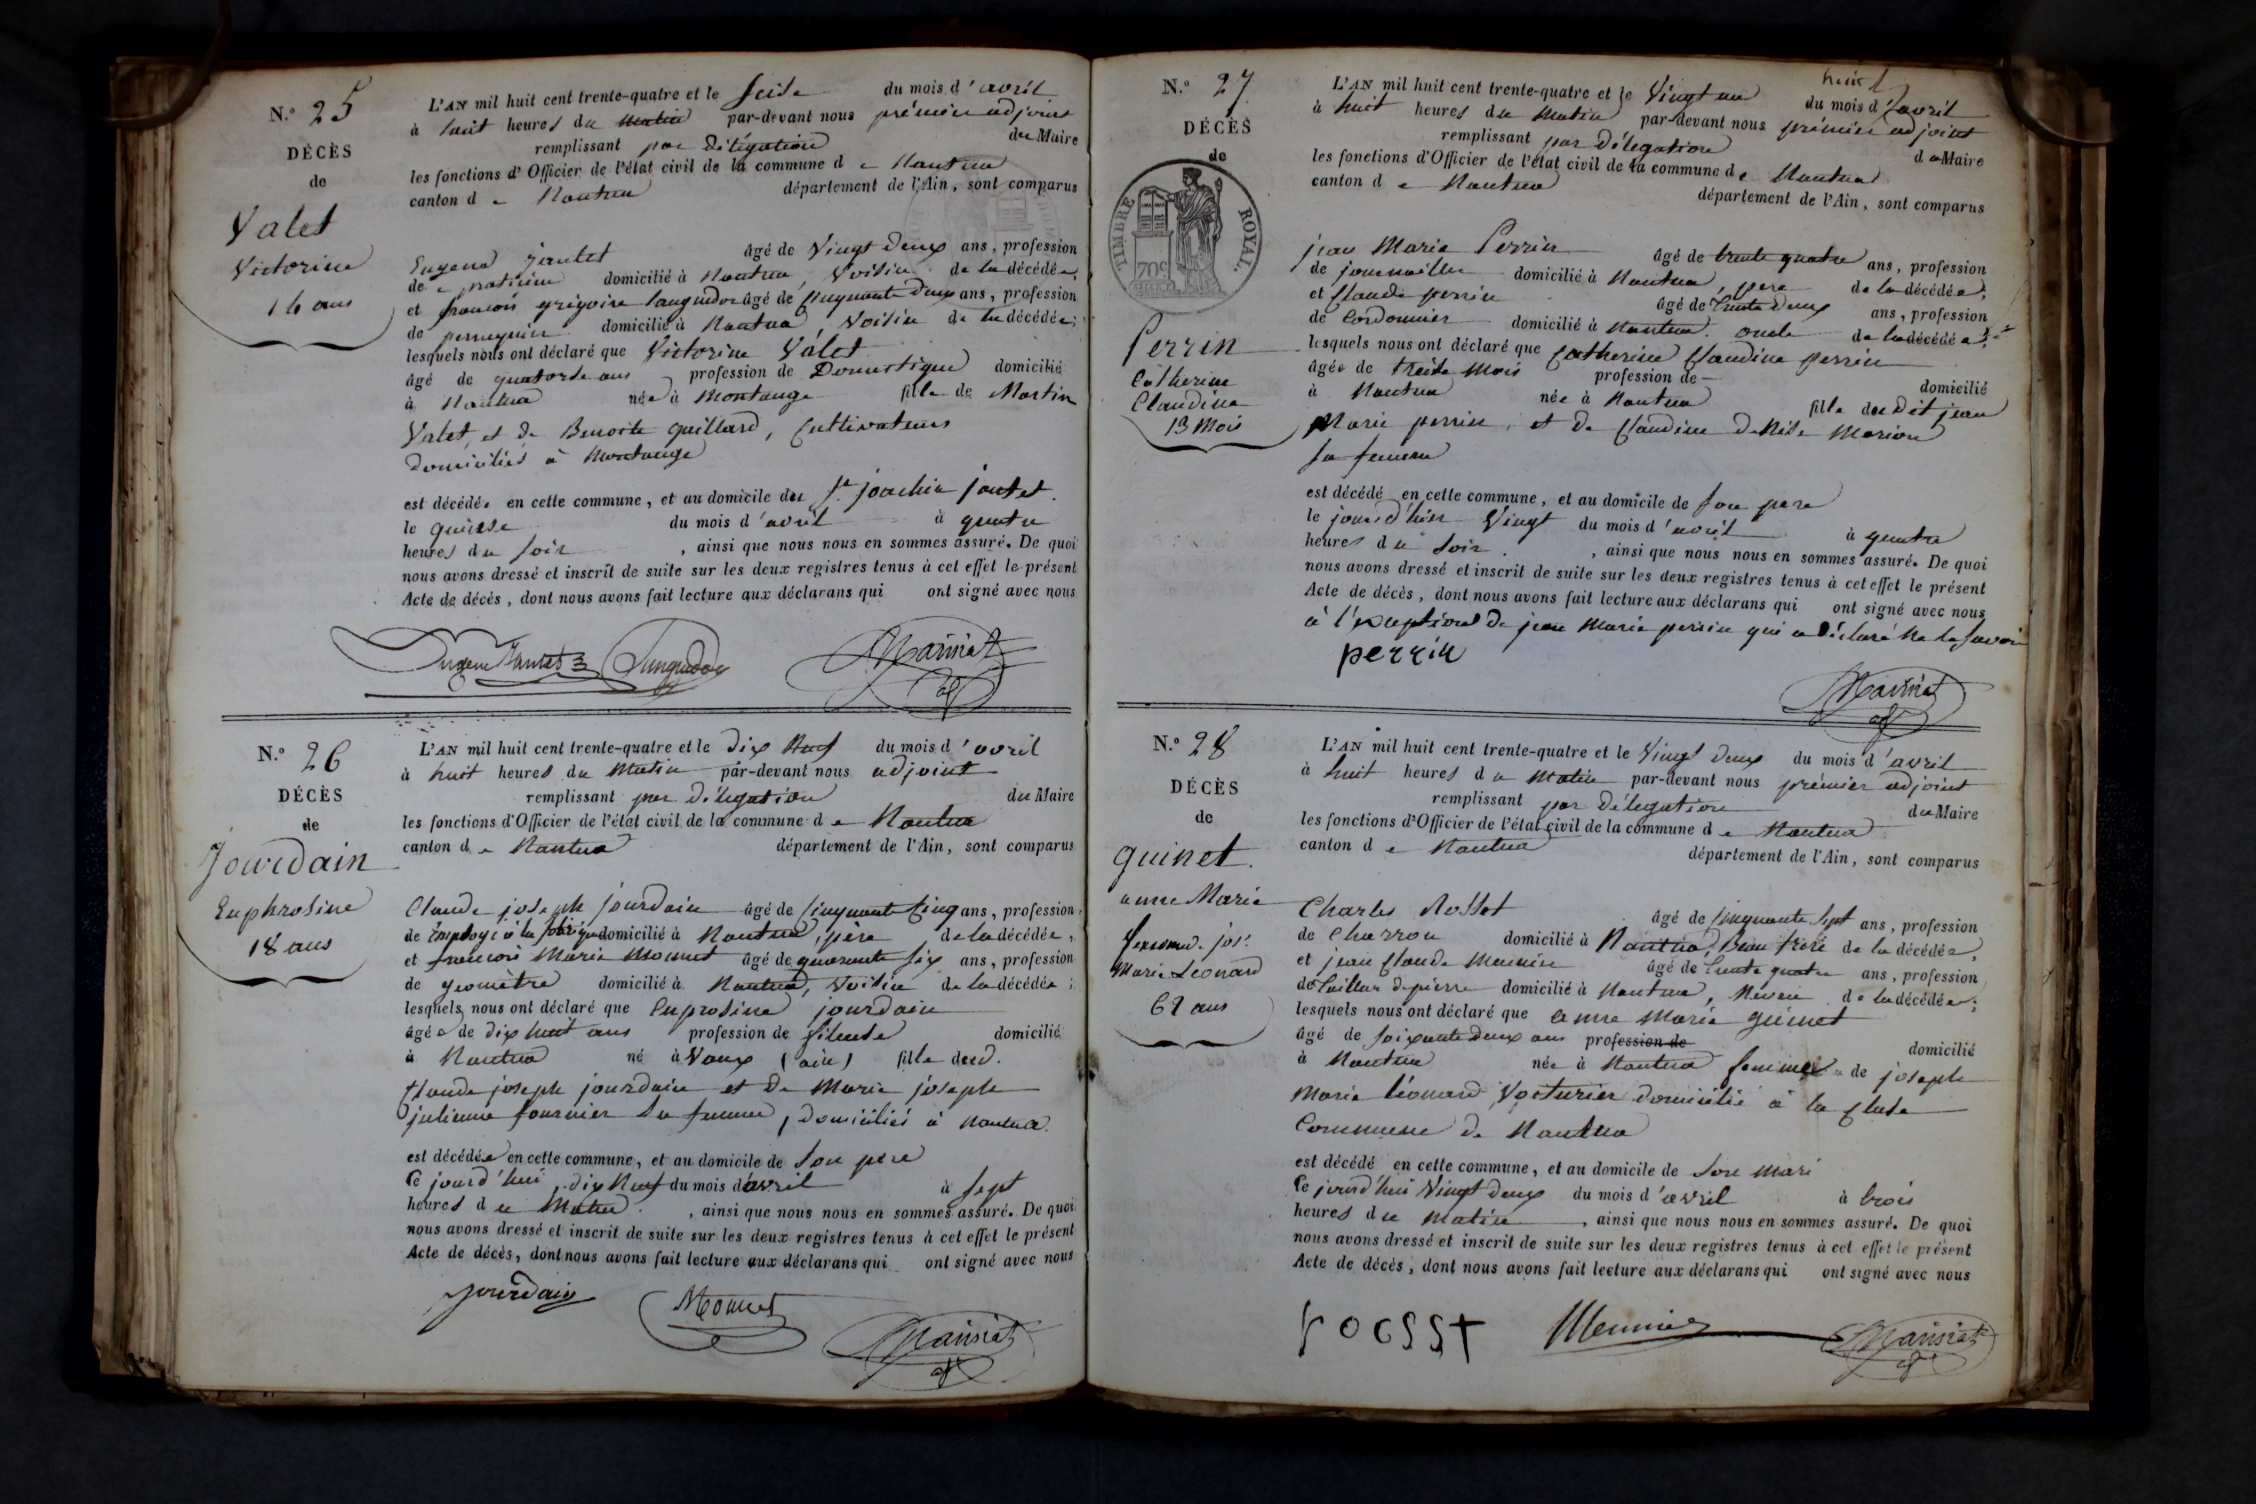 N.º 25
DÉCÈS
de
Valet
Victorine
14 ans
L'AN mil huit cent trente-quatre et le Seize du mois d'avril
à huit heures du matin par-devant nous prémier adjoint
remplissant par délégation du Maire
les fonctions d'Officier de l'état civil de la commune de Nantua
canton de Nantua département de l'Ain, sont comparus
Eugene Jantet âgé de Vingt deux ans, profession
de praticien domicilié à Nantua, Voisin de la décédée,
et francois grégoire Languedoc âgé de Cinquante deux ans, profession
de perruquier domicilié à Nantua, Voisin de la décédée;
lesquels nous ont déclaré que Victorine Valet
âgé de quatorze ans profession de Domestique domicilié
à Nantua née à Montange fille de Martin
Valet, et de Benoite Gaillard, Cultivateurs
domiciliés à Montange
est décédée en cette commune, et au domicile du Sr. joachin jantet.
le quinze du mois d'avril à quatre
heures du soir, ainsi que nous nous en sommes assuré. De quoi
nous avons dressé et inscrit de suite sur les deux registres tenus à cet effet le présent
Acte de décès, dont nous avons fait lecture aux déclarans qui ont signé avec nous
Eugene Jantet Languedoc Mainiat
N.º 26
DÉCÈS
de
Jourdain
Euphrosine
18 ans
L'AN mil huit cent trente-quatre et le dix Neuf du mois d'avril
à huit heures du Matin par-devant nous adjoint
remplissant par délégation du Maire
les fonctions d'Officier de l'état civil de la commune de Nantua
canton de Nantua département de l'Ain, sont comparus
Claude joseph jourdain âgé de Cinquante Cinq ans, profession
de Employé à la fabrique domicilié à Nantua, père de la décédée,
et francois Marie Mounet âgé de quarante six ans, profession
de géomètre domicilié à Nantua, Voisin de la décédée;
lesquels nous ont déclaré que Euprosine jourdain
âgée de dix huit ans profession de fileuse domicilié
à Nantua né à Vaux (ain) fille dud.
Claude joseph jourdain et de Marie joseph
julienne fournier sa femme, domiciliés à Nantua.
est décédée en cette commune, et au domicile de son père
Ce jourd'hui, dix Neuf du mois d'avril à sept
heures du Matin, ainsi que nous nous en sommes assuré. De quoi
nous avons dressé et inscrit de suite sur les deux registres tenus à cet effet le présent
Acte de décès, dont nous avons fait lecture aux déclarans qui ont signé avec nous
Jourdain Mounet Mainiat
N.º 27
DÉCÈS
de
TIMBRE ROYAL.
70c
Perrin
Catherine
Claudine
13 Mois
L'AN mil huit cent trente-quatre et le Vingt un du mois d'avril
à huit heures du Matin par-devant nous prémier adjoint
remplissant par délégation du Maire
les fonctions d'Officier de l'état civil de la commune de Nantua
canton de Nantua département de l'Ain, sont comparus
jean Marie Perrin âgé de trente quatre ans, profession
de journaillier domicilié à Nantua, pere de la décédée,
et Claude perrin âgé de trente deux ans, profession
de Cordonnier domicilié à Nantua. oncle de la décédée;
lesquels nous ont déclaré que Catherine Claudine perrin
âgée de treize Mois profession de — domicilié
à Nantua née à Nantua fille du Dit jean
Marie perrin, et de Claudine denise Marion
sa femme
est décédé en cette commune, et au domicile de son pere
le jour d'hier Vingt du mois d'avril à quatre
heures du soir, ainsi que nous nous en sommes assuré. De quoi
nous avons dressé et inscrit de suite sur les deux registres tenus à cet effet le présent
Acte de décès, dont nous avons fait lecture aux déclarans qui ont signé avec nous
à l'exception de jean Marie perrin qui a déclaré Ne le savoir
perrin
Mainiat
N.º 28
DÉCÈS
de
guinet.
anne Marie
femme jos.
Marie Léonard
62 ans
L'AN mil huit cent trente-quatre et le Vingt deux du mois d'avril
à huit heures du Matin par-devant nous prémier adjoint
remplissant par délégation du Maire
les fonctions d'Officier de l'état civil de la commune de Nantua
canton de Nantua département de l'Ain, sont comparus
Charles Rosset âgé de Cinquante sept ans, profession
de Charron domicilié à Nantua, Beau frere de la décédée,
et jean Claude Meunier âgé de trente quatre ans, profession
de tailleur de pierre domicilié à Nantua, Neveu de la décédée;
lesquels nous ont déclaré que anne Marie guinet
âgé de soixante deux ans profession de domicilié
à Nantua née à Nantua femme de joseph
Marie Léonard Voiturier domicilié à la Cluse
Commune de Nantua
est décédé en cette commune, et au domicile de son mari
Ce jourd'hui Vingt deux du mois d'avril à trois
heures du Matin, ainsi que nous nous en sommes assuré. De quoi
nous avons dressé et inscrit de suite sur les deux registres tenus à cet effet le présent
Acte de décès, dont nous avons fait lecture aux déclarans qui ont signé avec nous
Meunier Mainiat